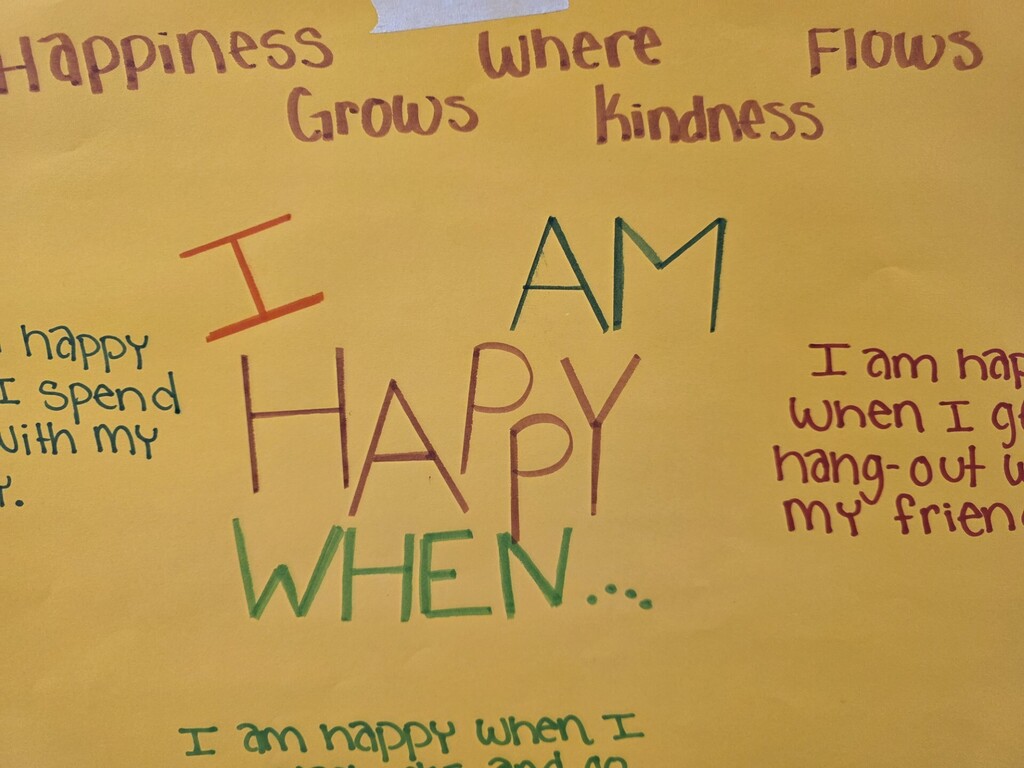 Happiness Where Flows
Grows Kindness
I AM
HAPPY
WHEN...
happy
I spend
with my
I am hap
when I g
hang-out w
my frien
I am happy when I
and go